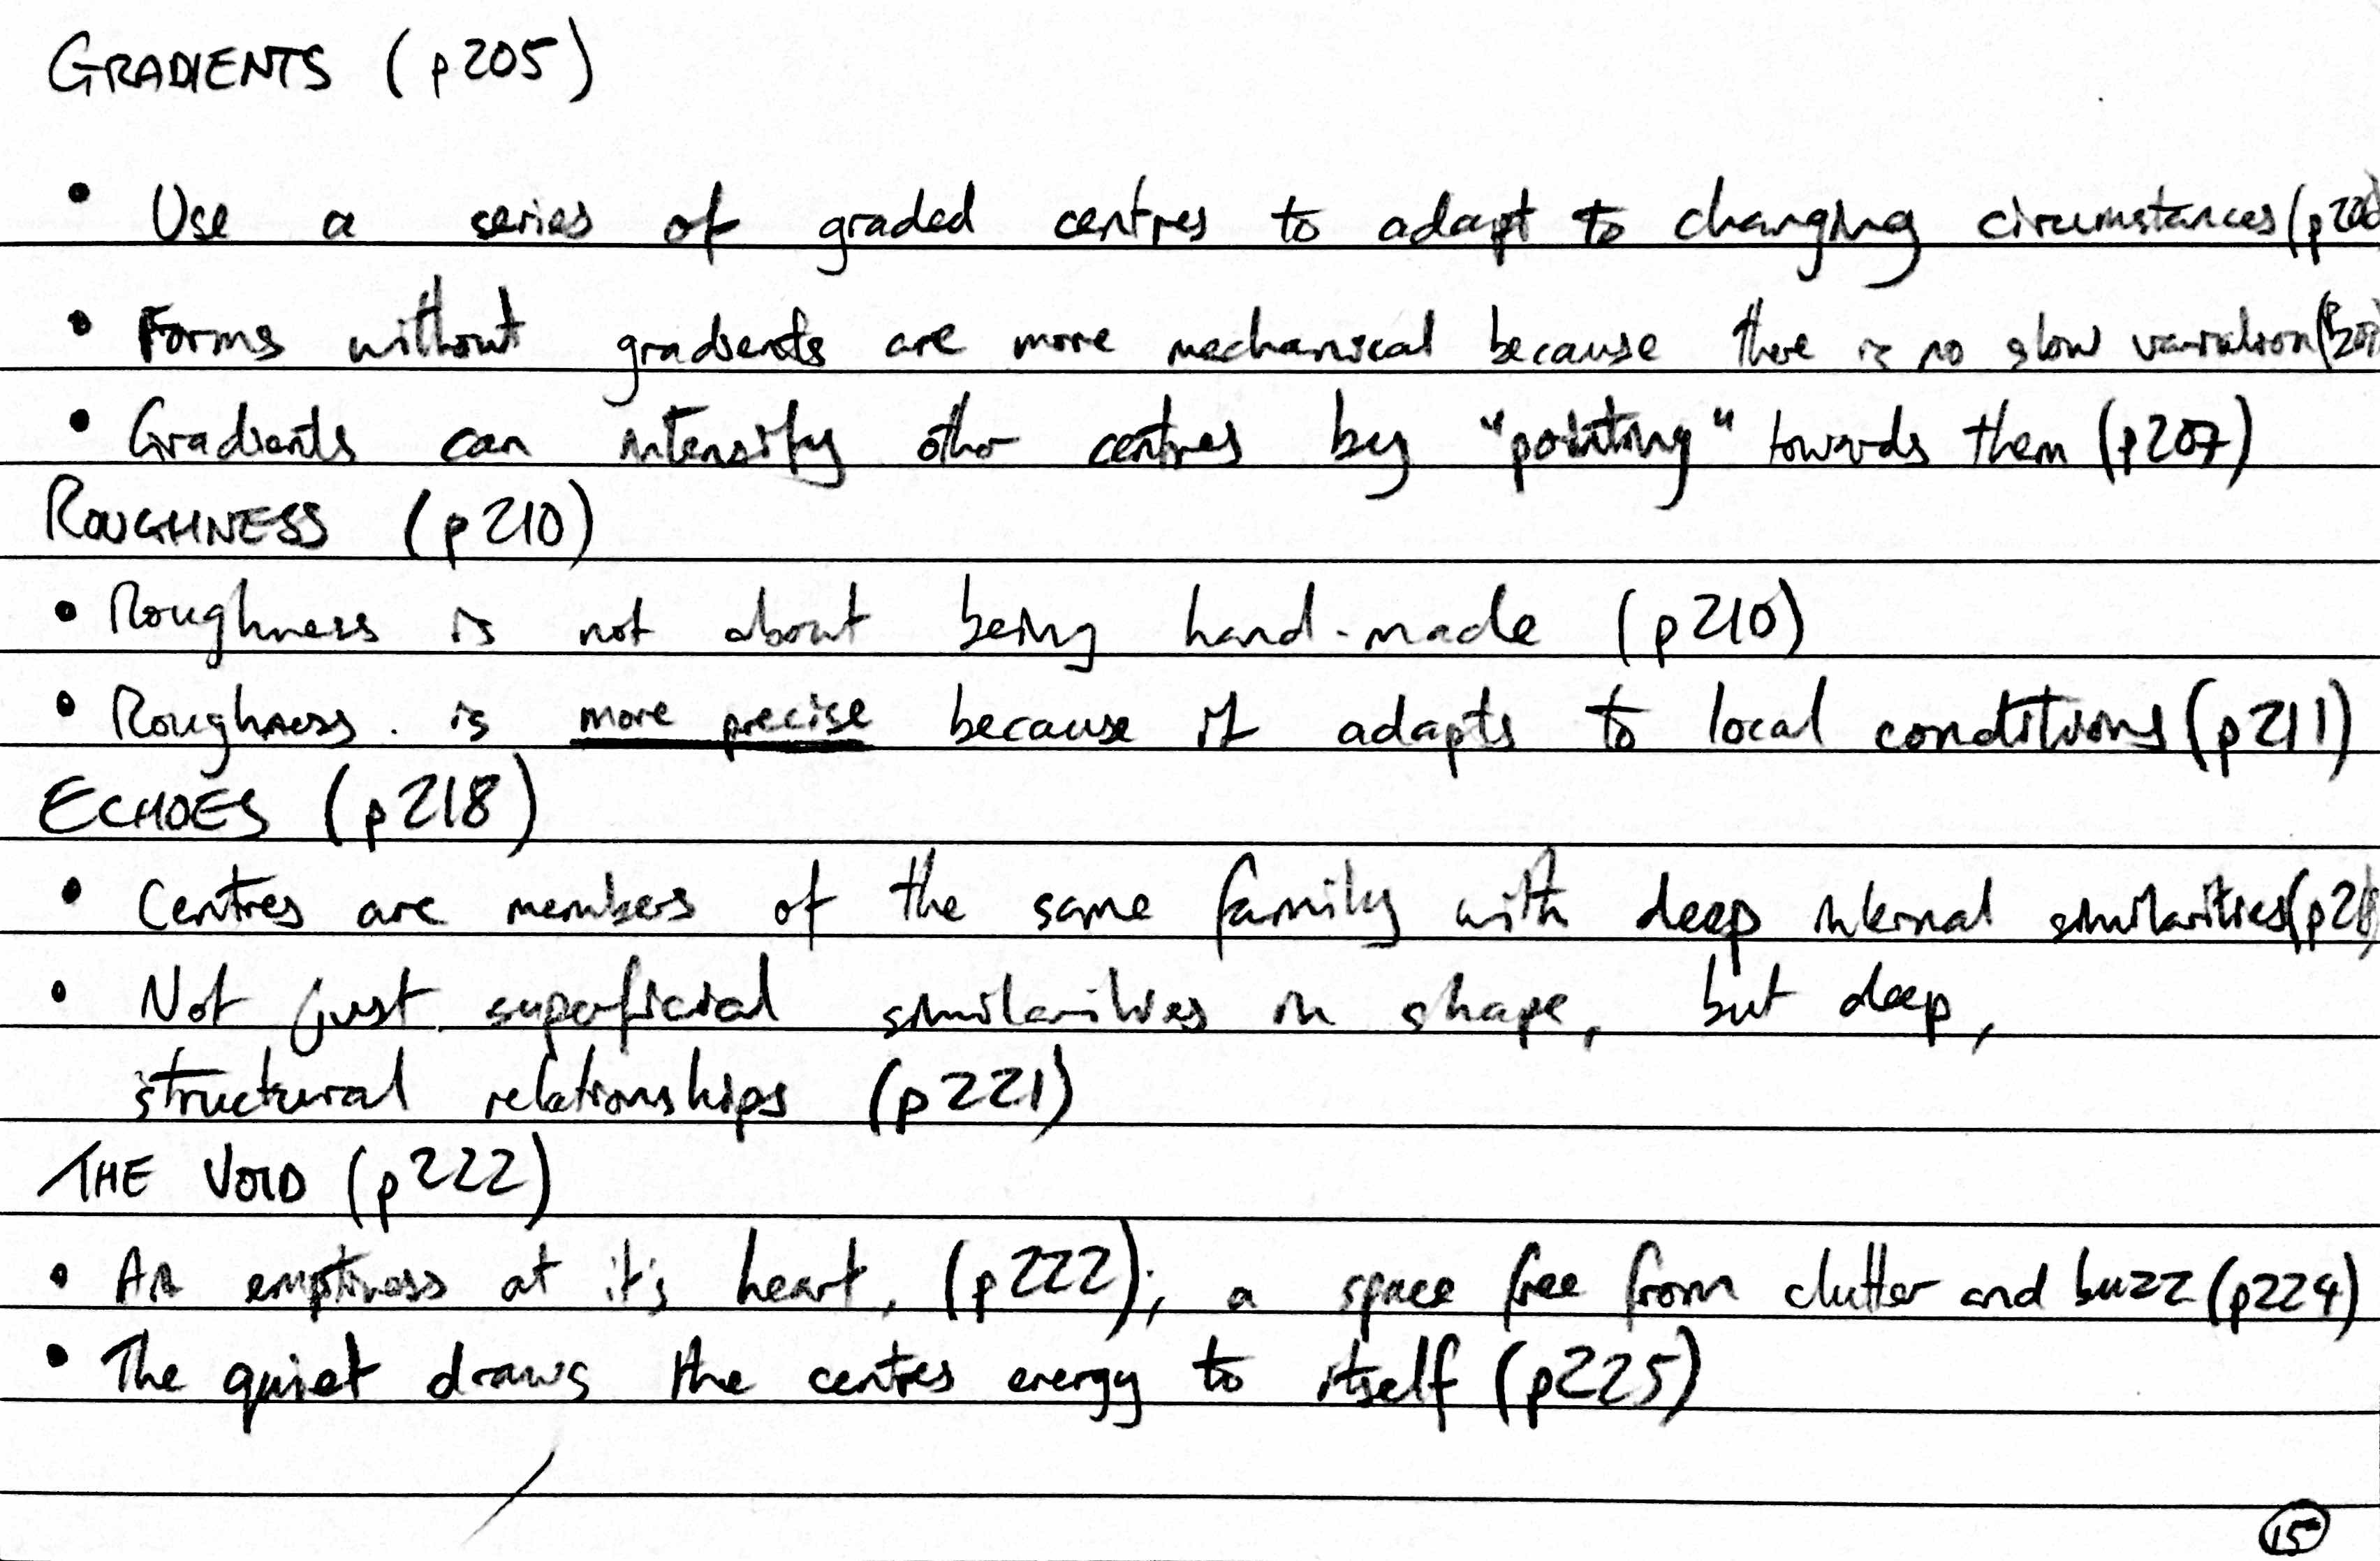 GRADIENTS (p205)
• Use a series of graded centres to adapt to changing circumstances
• Forms without gradients are more mechanical because there is no slow variation
• Gradients can intensify other centres by "pointing" towards them (p207)
ROUGHNESS (p210)
• Roughness is not about being hand-made (p210)
• Roughness is more precise because it adapts to local conditions (p211)
ECHOES (p218)
• Centres are members of the same family with deep internal similarities
• Not just superficial similarities in shape, but deep,
structural relationships (p221)
THE VOID (p222)
• An emptiness at it's heart, (p222); a space free from clutter and buzz (p224)
• The quiet draws the centres energy to itself (p225)
15